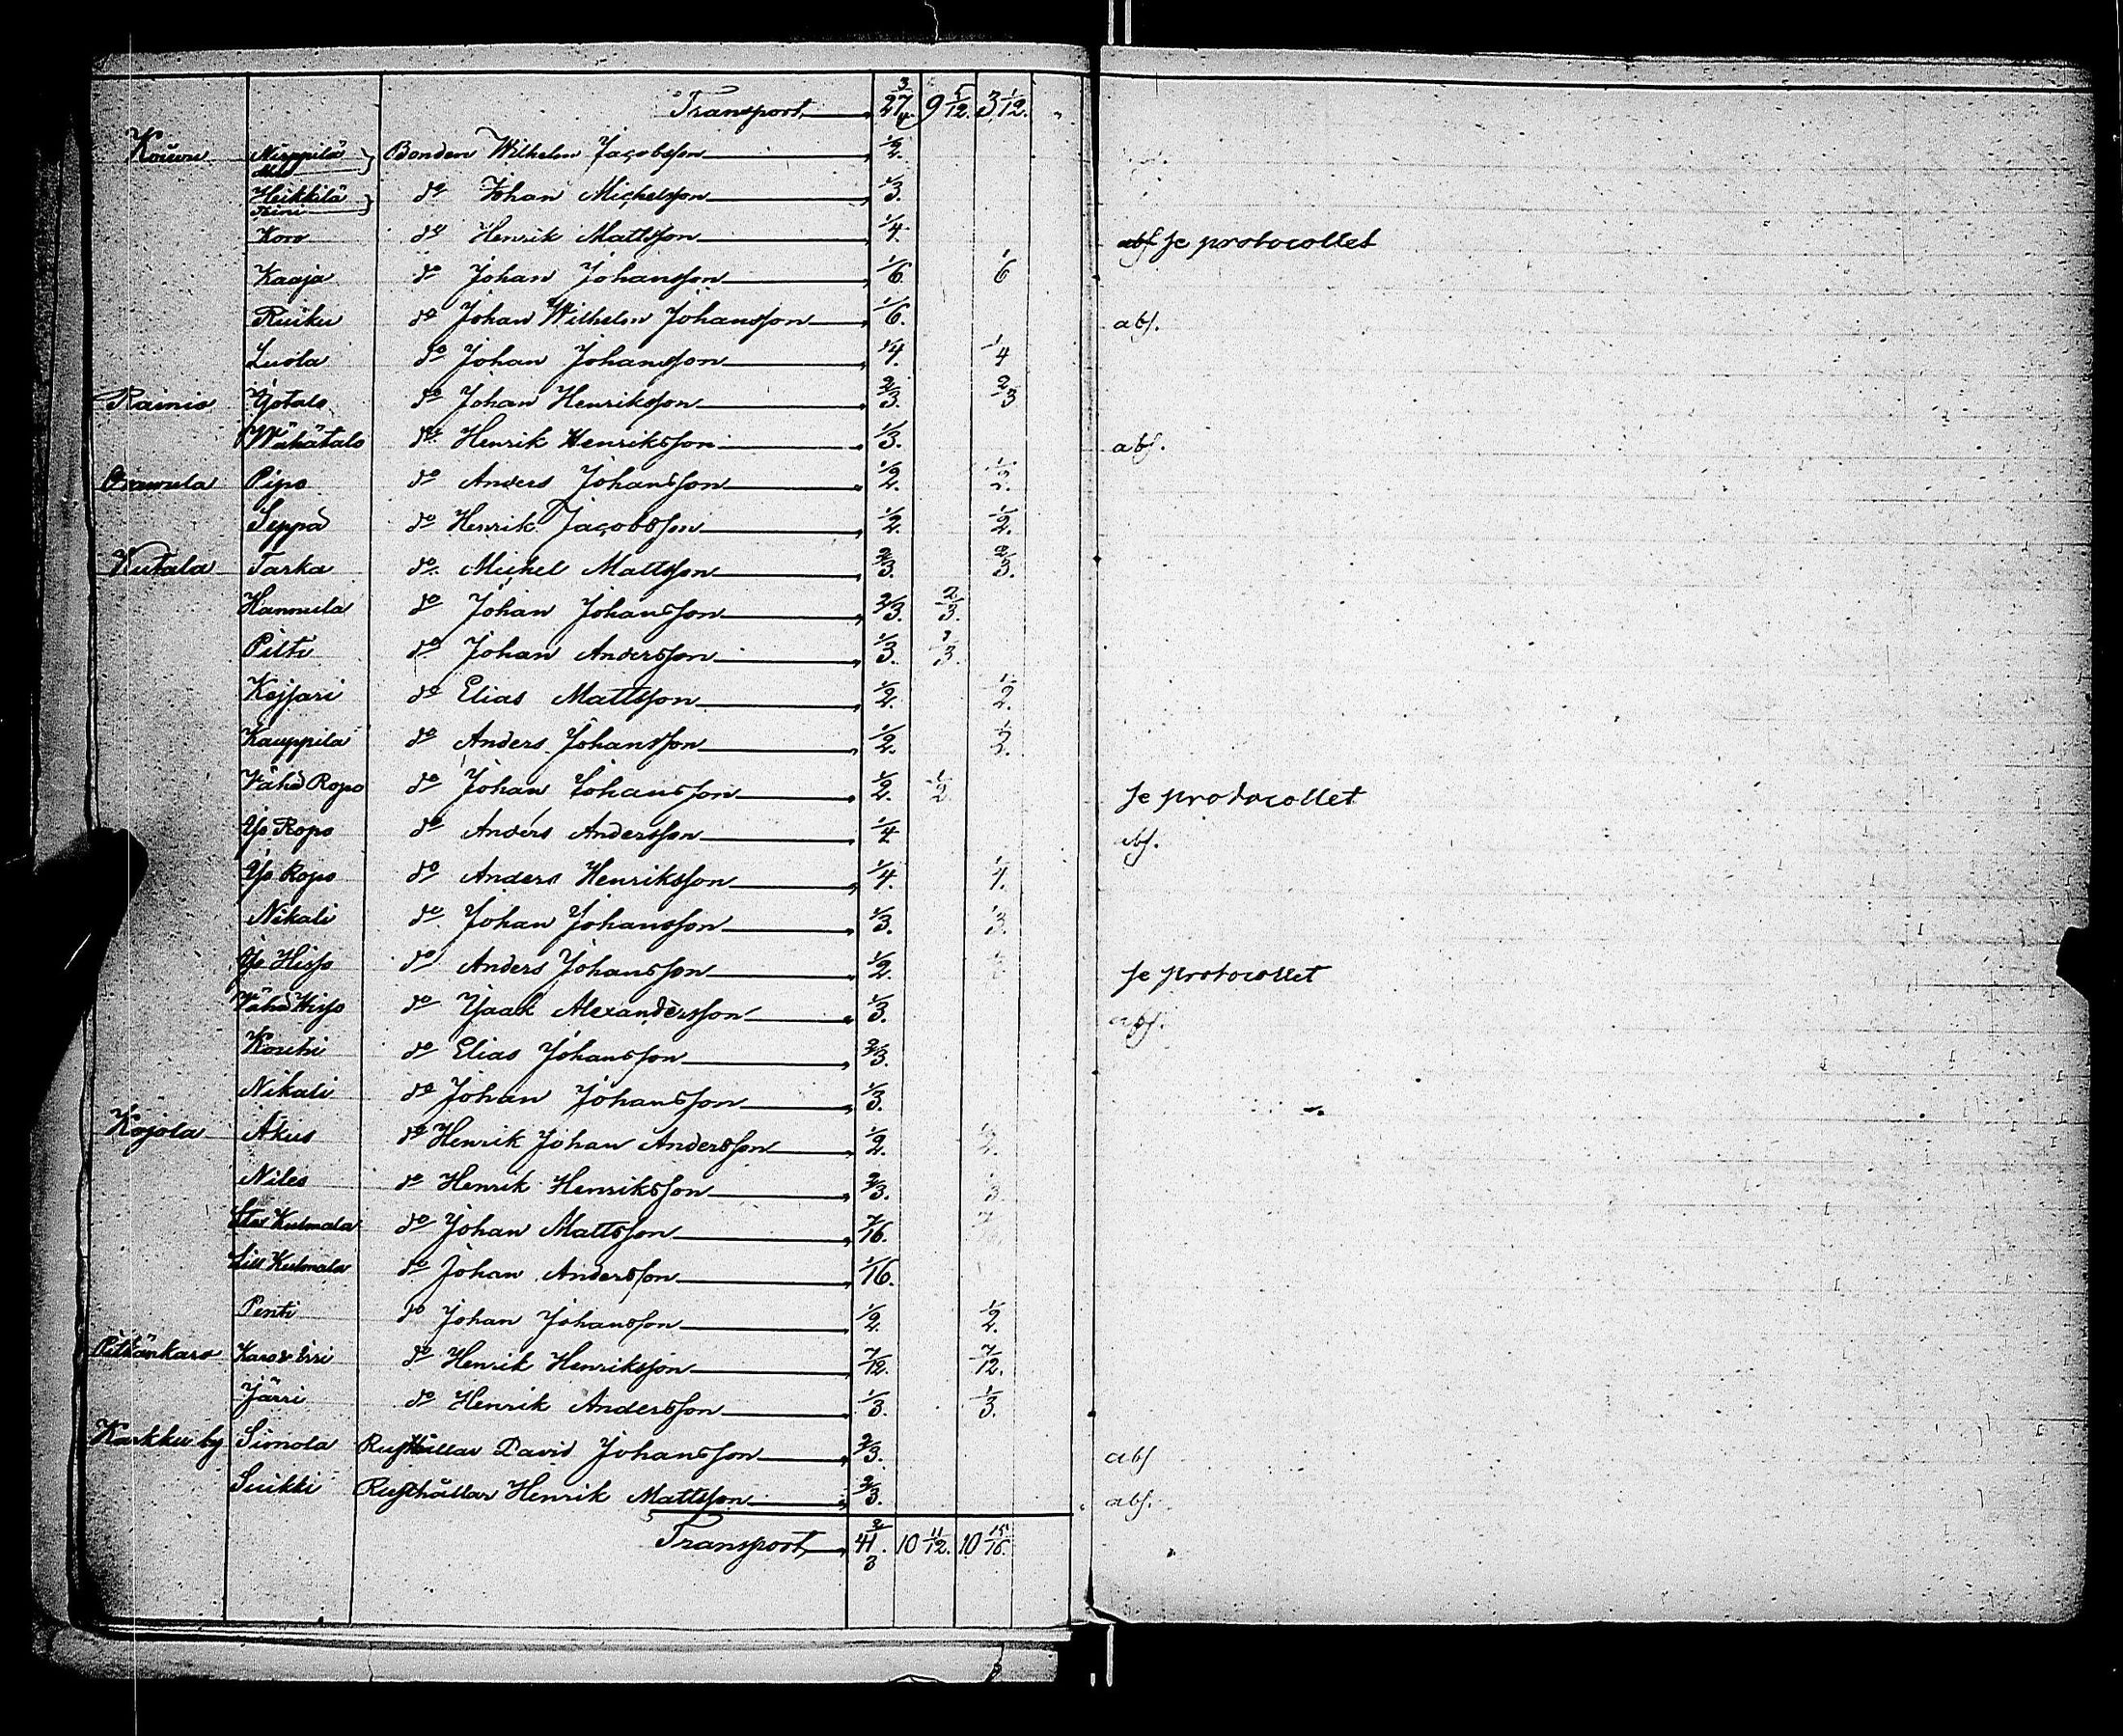 Transport 27 3/4 9 5/12. 3 1/12.
Kouvu Nirppilä Bonden Wilhelm Jacobsson 1/2.
Heikkilä do Johan Michelsson 1/3.
Koro do Henrik Mattsson 1/4. abs se protocollet
Kaaja do Johan Johansson 1/6 1/6
Ruiku do Johan Wilhelm Johansson 1/6. abs.
Luola do Johan Johansson 1/4. 1/4
Rainio Yötalo do Johan Henriksson 2/3. 2/3
Wähätalo do Henrik Henriksson 1/3. abs.
Pipo do Anders Johansson 1/2. 1/2.
Seppä do Henrik Jacobsson 1/2. 1/2.
Kutala Tarka do Michel Mattsson 2/3. 2/3.
Hannula do Johan Johansson 2/3. 2/3.
Piltti do Johan Andersson 1/3. 1/3.
Kejsari do Elias Mattsson 1/2. 1/2.
Kauppila do Anders Johansson 1/2. 1/2.
Vähä Ropo do Johan Johansson 1/2. 1/2. se protocollet
Yö Ropo do Anders Andersson 1/4 abs.
Yö Ropo do Anders Henriksson 1/4. 1/4.
Nikali do Johan Johansson 1/3. 1/3.
Yö Hisso do Anders Johansson 1/2. se protocollet
Vähä Hisso do Isaak Alexandersson 1/3. abs.
do Elias Johansson 2/3.
Nikali do Johan Johansson 1/3.
Kojola Äkus do Henrik Johan Andersson 1/2. 1/2.
Niles do Henrik Henriksson 2/3. 1/3
Stor Kulmala do Johan Mattsson 7/16. 7/16.
Lill Kulmala do Johan Andersson 1/16.
Pentti do Johan Johansson 1/2. 1/2.
Pitkänkaro do Henrik Henriksson 7/12. 7/12.
Järri do Henrik Andersson 1/3. 1/3.
Karkku by Simola Rusthållar David Johansson 2/3. abs
Suikki Rusthållar Henrik Mattsson 2/3. abs.
Transport 41 2/3. 10 11/12. 10 15/16.